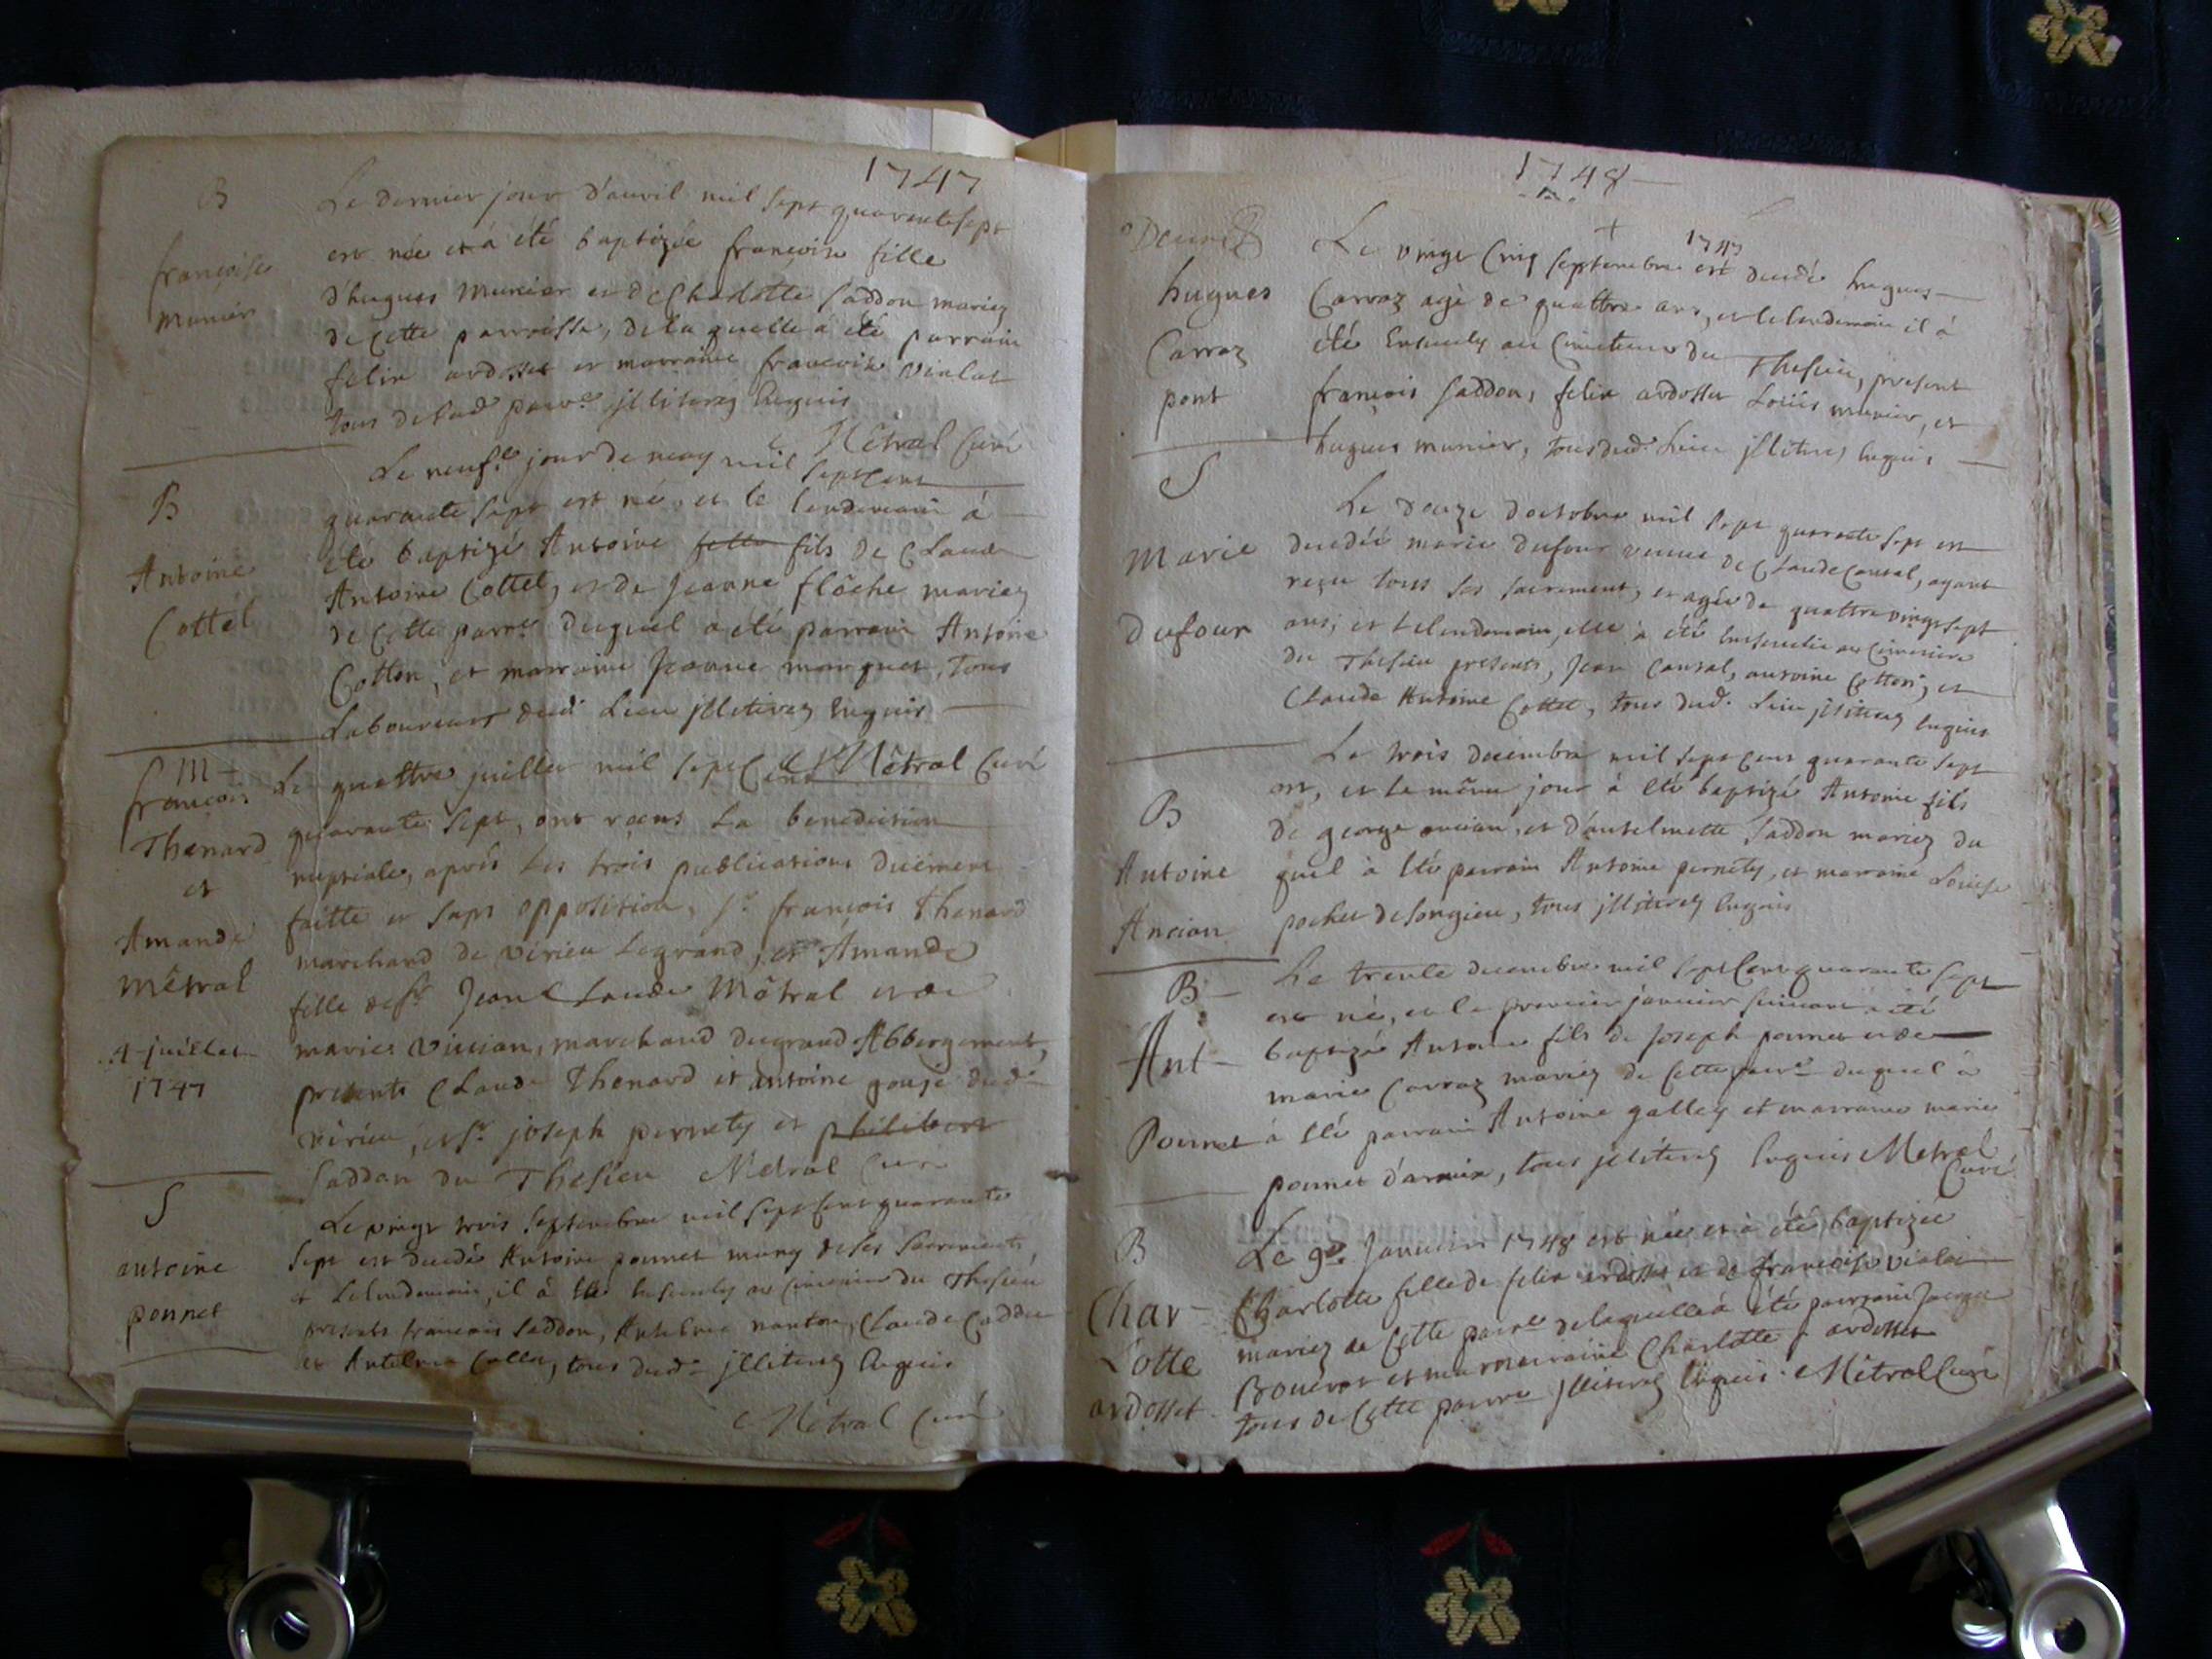 1747
B
françoise
munier
Le dernier jour d'auril mil sept quarante sept
est née et à été baptizée françoise fille
d'hugues munier et de Charlotte saddon mariez
de Cette parroisse, de la quelle à été parrain
felix ardosset et marraine françoise violet
tous de lad parr.e jlliterez Enquis
Mêtral Curé
B
Antoine
Cottel
Le neuf.e jour de may mil sept Cent
quarante sept est né, et le lendemain à
été baptizé Antoine fille fils de Claude
Antoine Cottel, et de Jeanne flôche mariez
de Cette parr.e duquel à été parrain Antoine
Cotton, et marraine Jeanne marquet, tous
Laboureurs dud. Lieu jlliterez Enquis
Mêtral Curé
M
françois
Thenard
et
Amande
Mêtral
4 juillet
1747
Le quattre juillet mil sept Cent
quarante sept, ont reçus La benediction
nuptiale, après les trois publications duëment
faitte et sans opposition, s.r françois thenard
marchand de virieu Legrand, et Amande
fille de s.r Jean Claude Mêtral et de
marie vivian, marchand du grand Abbergement,
presents Claude Thenard et antoine goujé dud.
virieu, et s.r joseph pernety et philibert
saddon du Thesieu Metral Curé
S
antoine
ponnet
Le vingt trois septembre mil sept Cent quarante
sept est decedé Antoine ponnet muny de ses sacrements,
et Le lendemain, il à été Ensevely au Cimetiere du Thesieu
presents françois saddon, Antelme nanton, Claude Caddu
et Antelme Collet, tous dud. jlliterez Enquis
Mêtral Curé
1748
S
hugues
Carraz
pont
Le vingt Cinq septembre 1747 est decedé hugues
Carraz agé de quattre ans, et le lendemain il à
été Ensevely au Cimetiere du Thesieu, présent
françois saddon, felix ardosset Loüis munier, et
hugues munier, tous dud. Lieu jlliterez enquis
S
Marie
Dufour
Le douze doctobre mil sept quarante sept est
decedée marie dufour veuve de Claude Cantal, ayant
reçu tous ses sacrement, et agée de quattre vingt sept
ans, et le lendemain, elle à été Ensevelie au Cimetiere
du Thesieu presents, Jean Cantal, antoine Cotton, et
Claude Antoine Cottel, tous dud. Lieu jlliterez enquis
B
Antoine
Ancian
Le trois decembre mil sept cent quarante sept
est, et le même jour à été baptizé Antoine fils
de george ancian, et d'antelmette saddon mariez du
quel à été parrain Antoine pernety, et marraine Louise
pochet de songieu, tous jlliterez enquis
B
Ant
Ponnet
Le trente decembre mil sept Cent quarante sept
est né, et le premier janvier suivant a été
baptizé Antoine fils de joseph ponnet et de
marie Carraz mariez de Cette parr.e duquel à
à été parrain Antoine galley et marraine marie
ponnet d'armix, tous jlliterez Enquis Metral
Curé
B
Char
Lotte
ardosset
Le 9.e Januier 1748 est née et à été baptizée
Charlotte fille de felix ardosset et de françoise violet
mariez de Cette parr.e de laquelle à été parrain
Bouvrot et marraine Charlotte ardosset
tous de Cette parr.e jlliterez Enquis Mêtral Curé